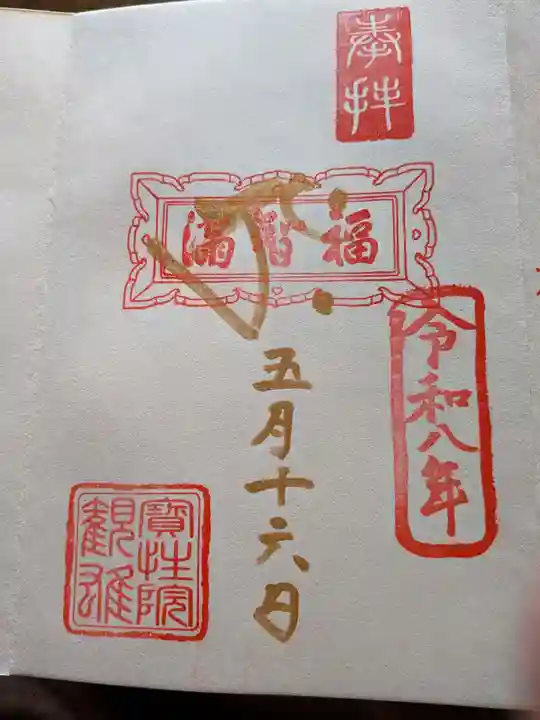 奉拝
福智満
令和八年
五月十六日
寶性院
観雅